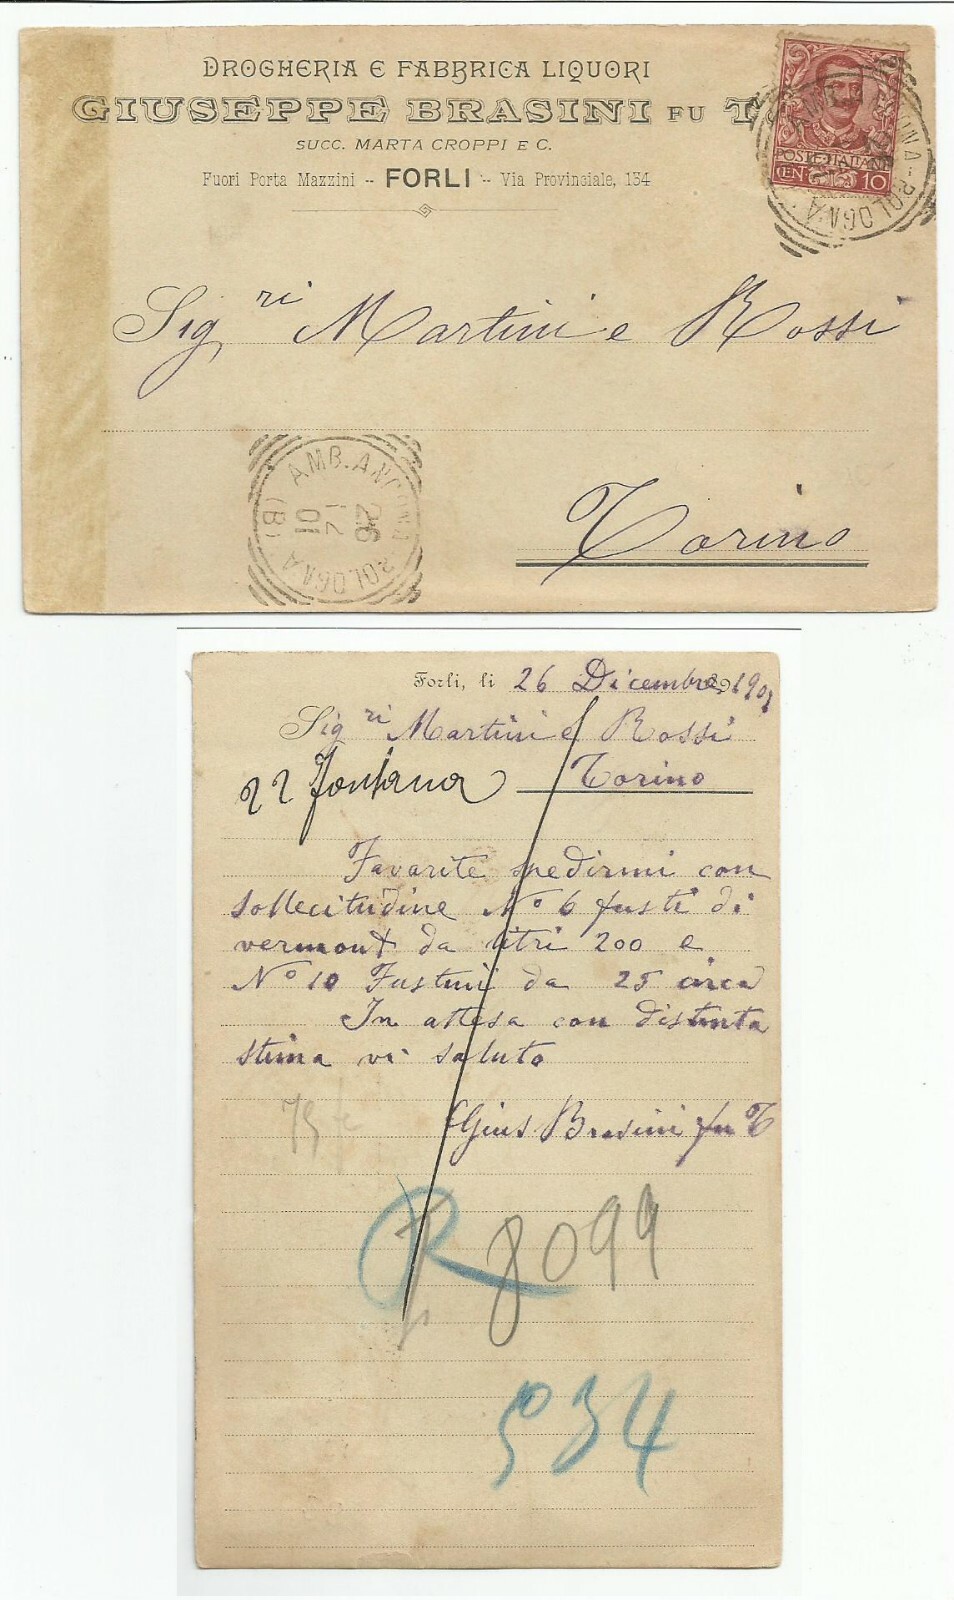 DROGHERIA E FABBRICA LIQUORI
GIUSEPPE BRASINI FU T
SUCC. MARTA CROPPI E C.
Fuori Porta Mazzini -- FORLI -- Via Provinciale, 134
POSTE ITALIANE
CEN. 10
BOLOGNA
Sig.ri Martini e Rossi
Torino
AMB. ANCONA-BOLOGNA
26
12
01
(B)
Forlì, li 26 Dicembre 1901
Sigri Martini e Rossi
Fontana Torino
Favorite spedirmi con
sollecitudine No 6 fusti di
vermout da litri 200 e
No 10 Fustini da 25 circa
In attesa con distinta
stima vi saluto
Gius Brasini fu T
75
R 8099
534